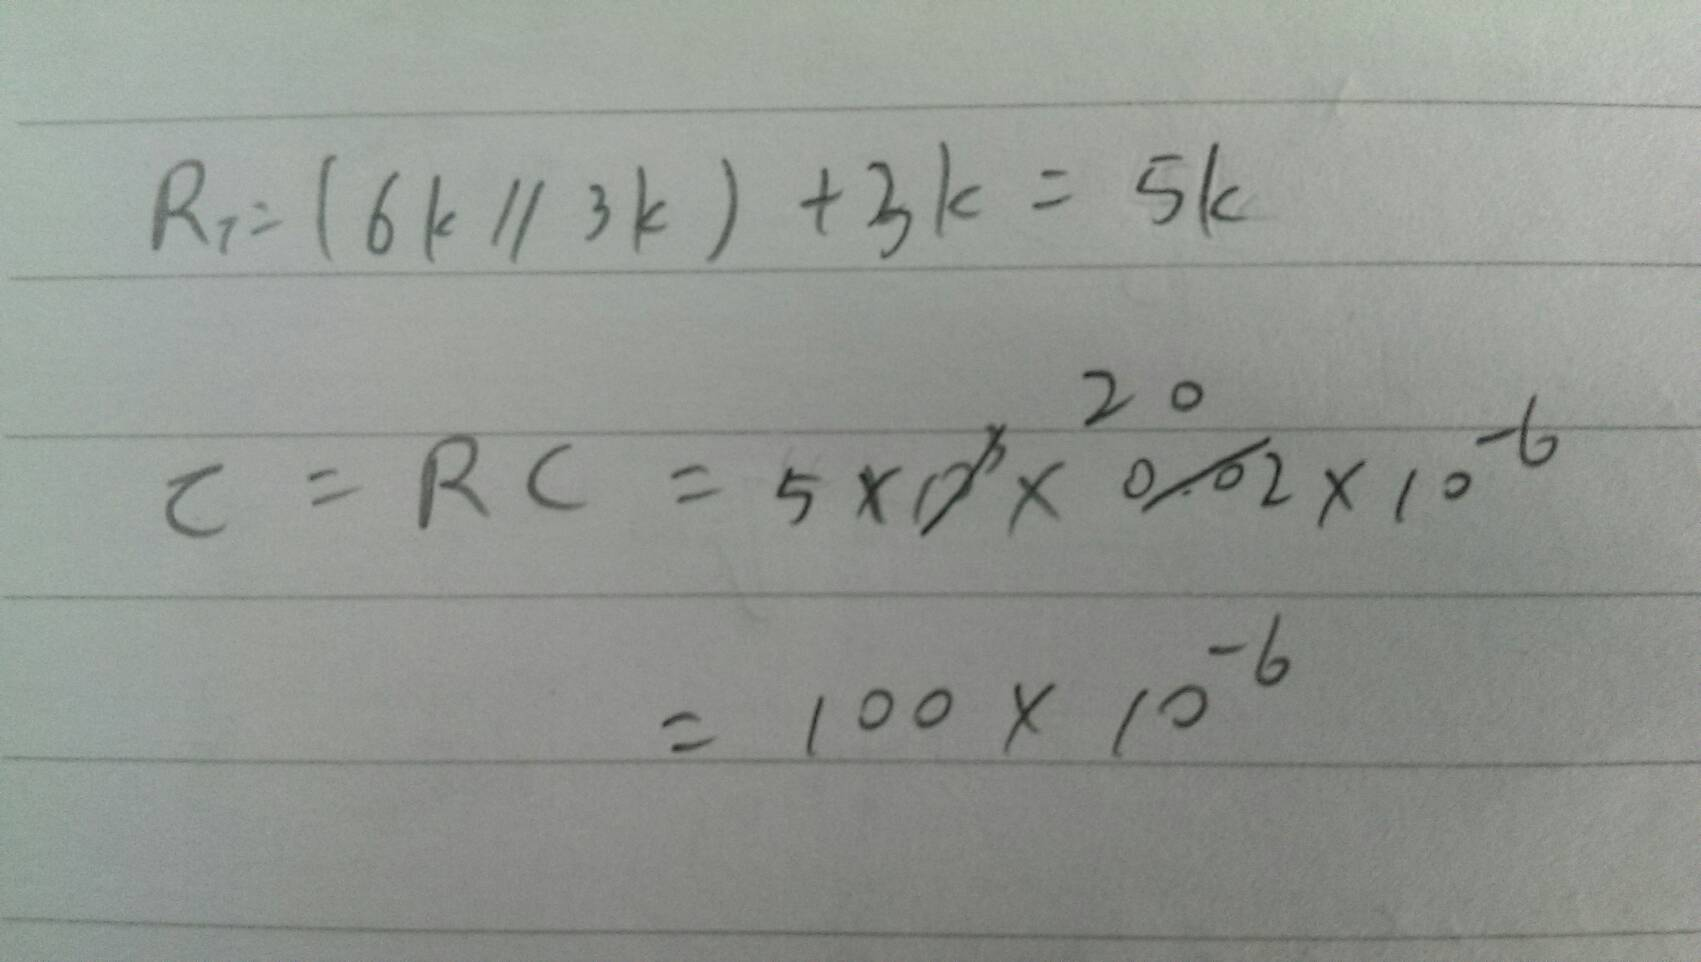 R_T = (6k // 3k) + 3k = 5k
20
τ = RC = 5 × 10³ × 0.02 × 10⁻⁶
= 100 × 10⁻⁶